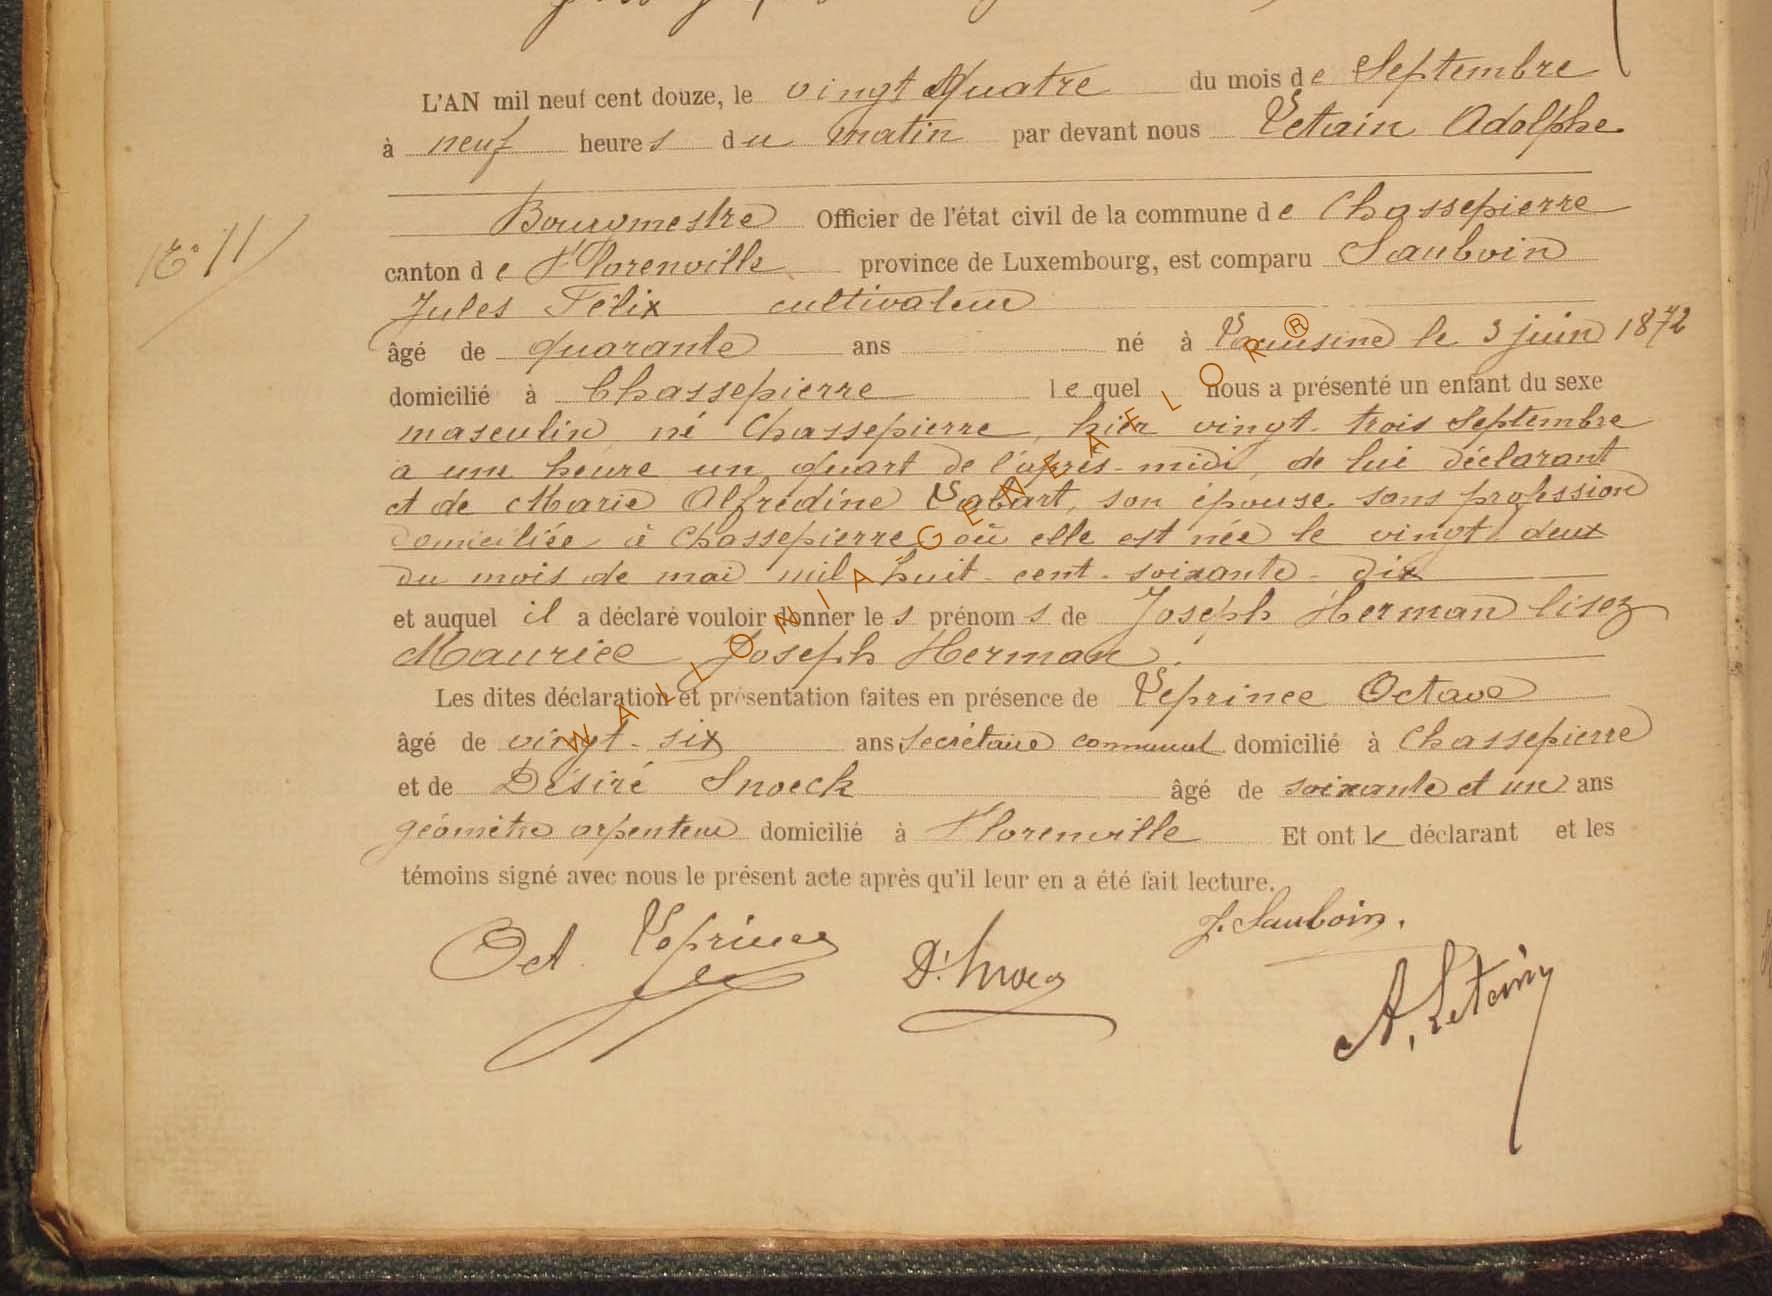 L'AN mil neuf cent douze, le vingt quatre du mois de Septembre
à neuf heures du matin par devant nous Letain Adolphe
Bourgmestre Officier de l'état civil de la commune de Chassepierre
N° 11
canton de Florenville province de Luxembourg, est comparu Sauboin
Jules Félix cultivateur
âgé de quarante ans né à le 3 juin 1872
domicilié à Chassepierre lequel nous a présenté un enfant du sexe
masculin né Chassepierre, hier vingt-trois Septembre
a une heure un quart de l'après-midi, de lui déclarant
et de Marie Alfrédine Labart, son épouse, sans profession
domiciliée à Chassepierre où elle est née le vingt deux
du mois de mai mil huit-cent-soixante-dix
et auquel il a déclaré vouloir donner les prénoms de Joseph Herman lisez
Maurice Joseph Herman.
Les dites déclaration et présentation faites en présence de Leprince Octave
âgé de vingt-six ans secrétaire communal domicilié à Chassepierre
et de Désiré Snoeck âgé de soixante et un ans
géomètre arpenteur domicilié à Florenville Et ont le déclarant et les
témoins signé avec nous le présent acte après qu'il leur en a été fait lecture.
J. Sauboin.
Oct. Leprince
D. Snoeck
A. Letain
WALLONIA GENEAELOR®